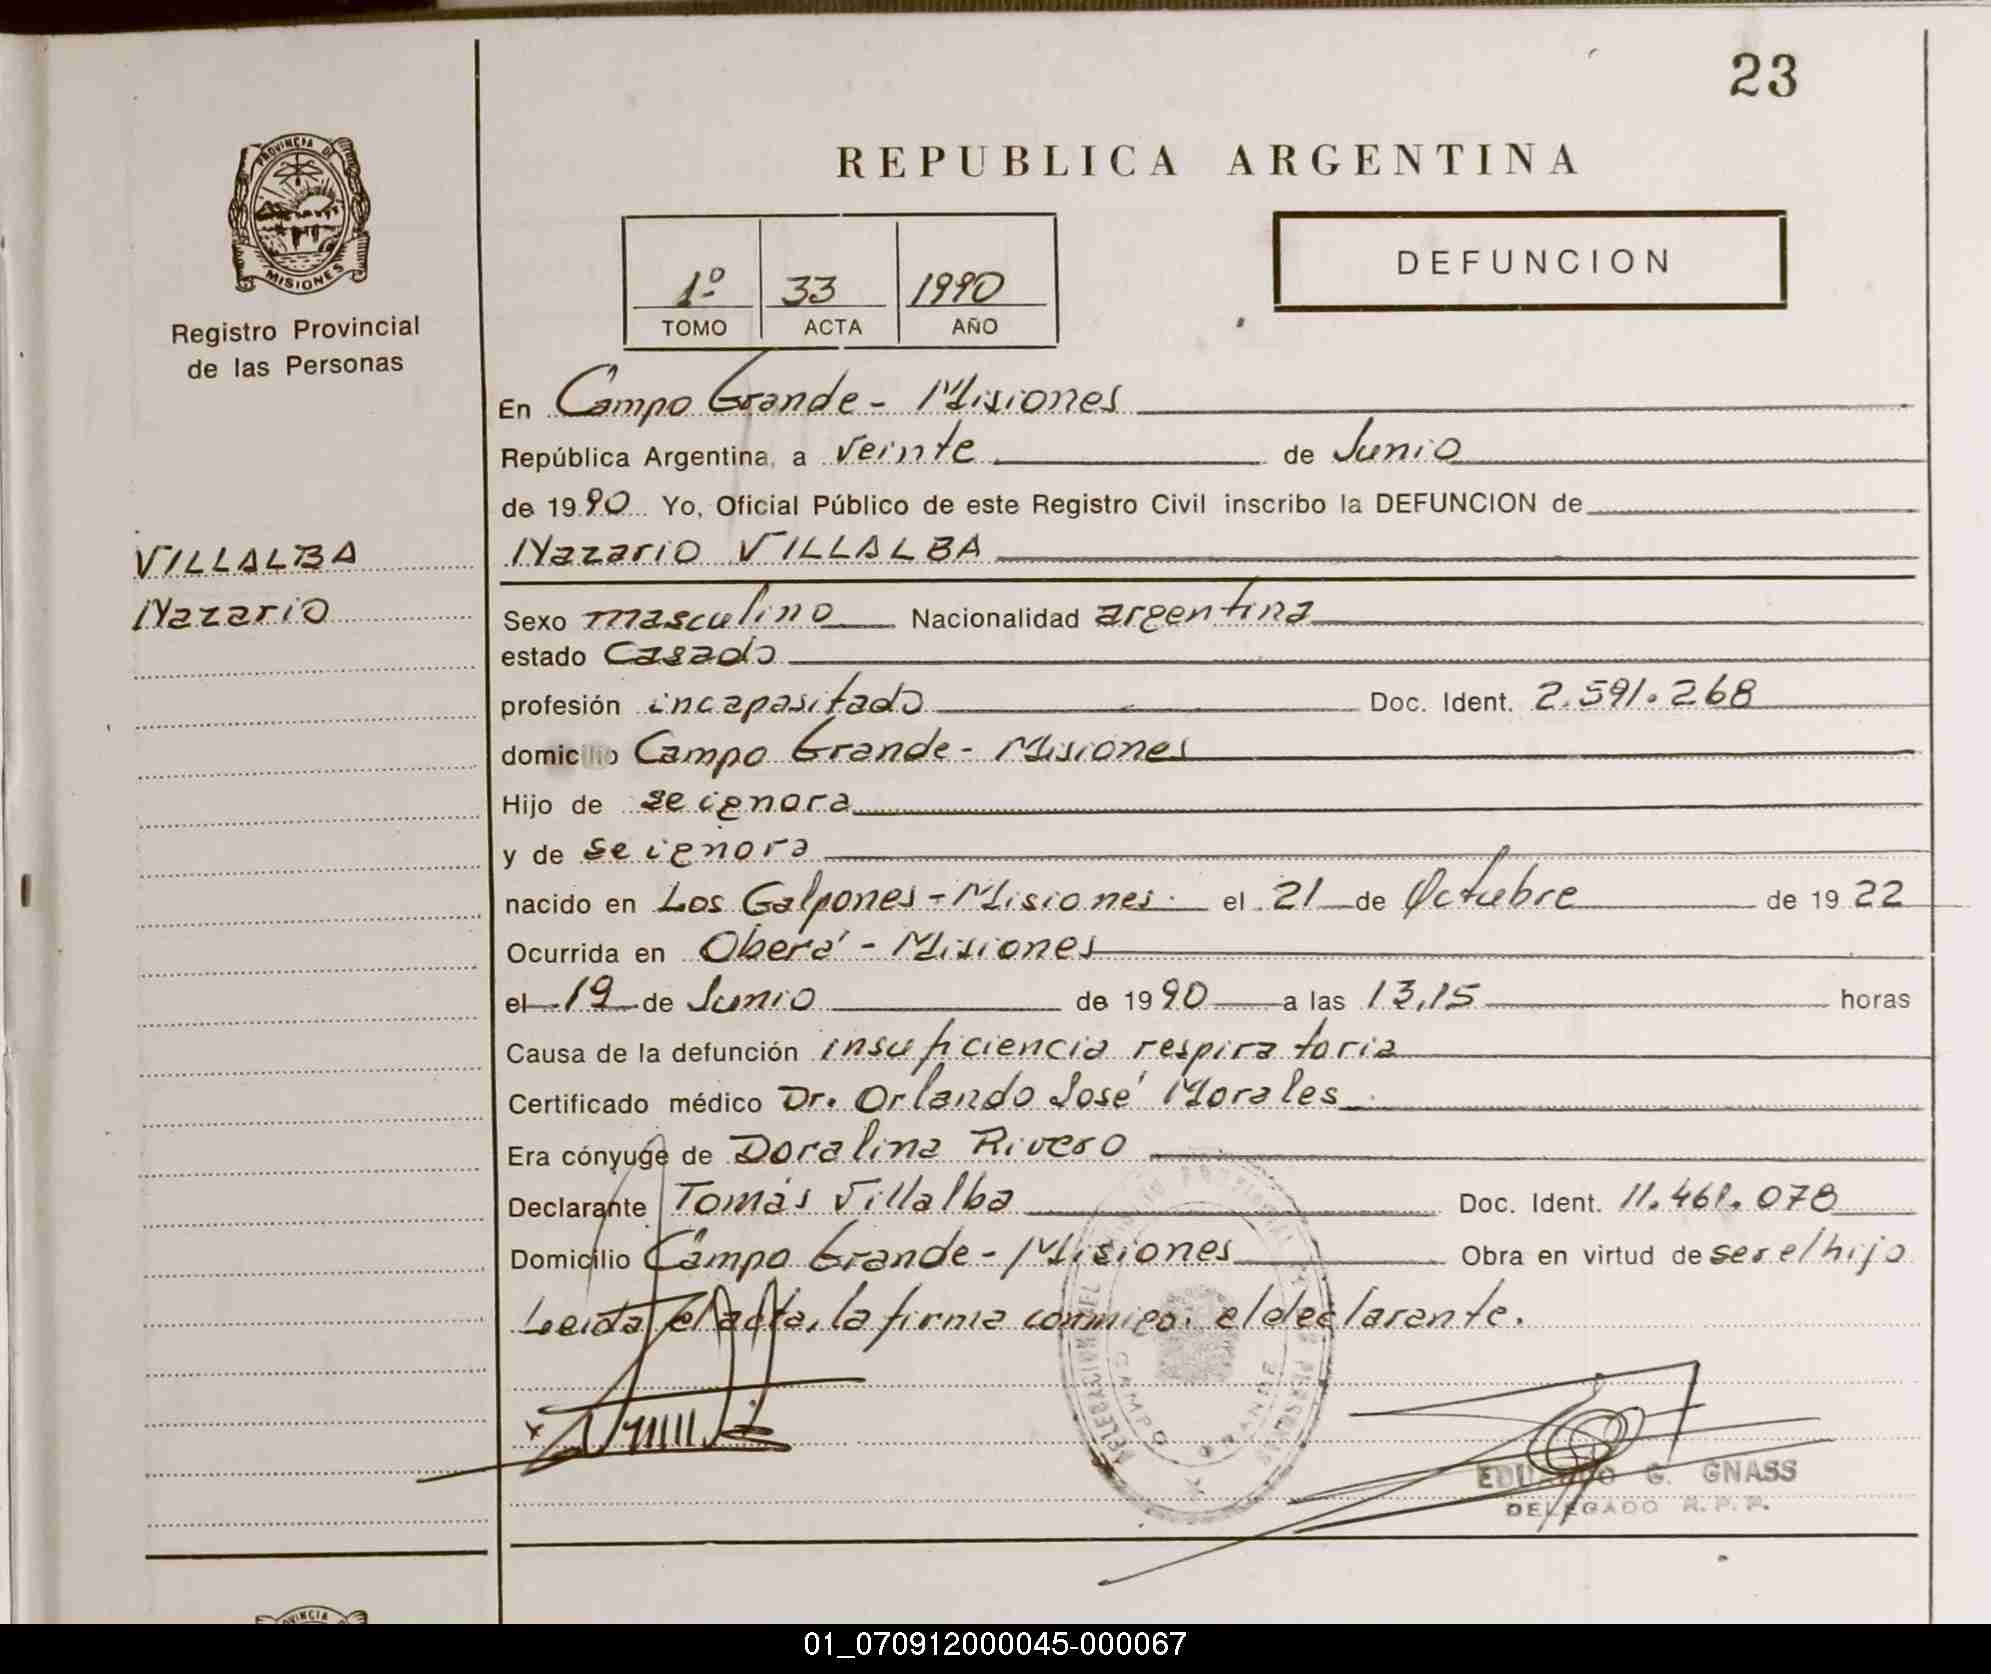 23
PROVINCIA DE
MISIONES
Registro Provincial
de las Personas
REPUBLICA ARGENTINA
1º 33 1990
TOMO ACTA AÑO
DEFUNCION
En Campo Grande - Misiones
República Argentina, a veinte de Junio
de 1990 Yo, Oficial Público de este Registro Civil inscribo la DEFUNCION de
VILLALBA
Nazario
Nazario VILLALBA
Sexo masculino Nacionalidad argentina
estado Casado
profesión incapasitado Doc. Ident. 2.591.268
domicilio Campo Grande - Misiones
Hijo de se ignora
y de se ignora
nacido en Los Galpones - Misiones el 21 de Octubre de 1922
Ocurrida en Oberá - Misiones
el 19 de Junio de 1990 a las 13,15 horas
Causa de la defunción insuficiencia respiratoria
Certificado médico Dr. Orlando José Morales
Era cónyuge de Doralina Rivero
Declarante Tomás Villalba Doc. Ident. 11.461.078
Domicilio Campo Grande - Misiones Obra en virtud de ser el hijo
Leida el acta, la firma conmigo, el declarante.
CAMPO GRANDE
EDUARDO G. GNASS
DELEGADO R. P. P.
01_070912000045-000067